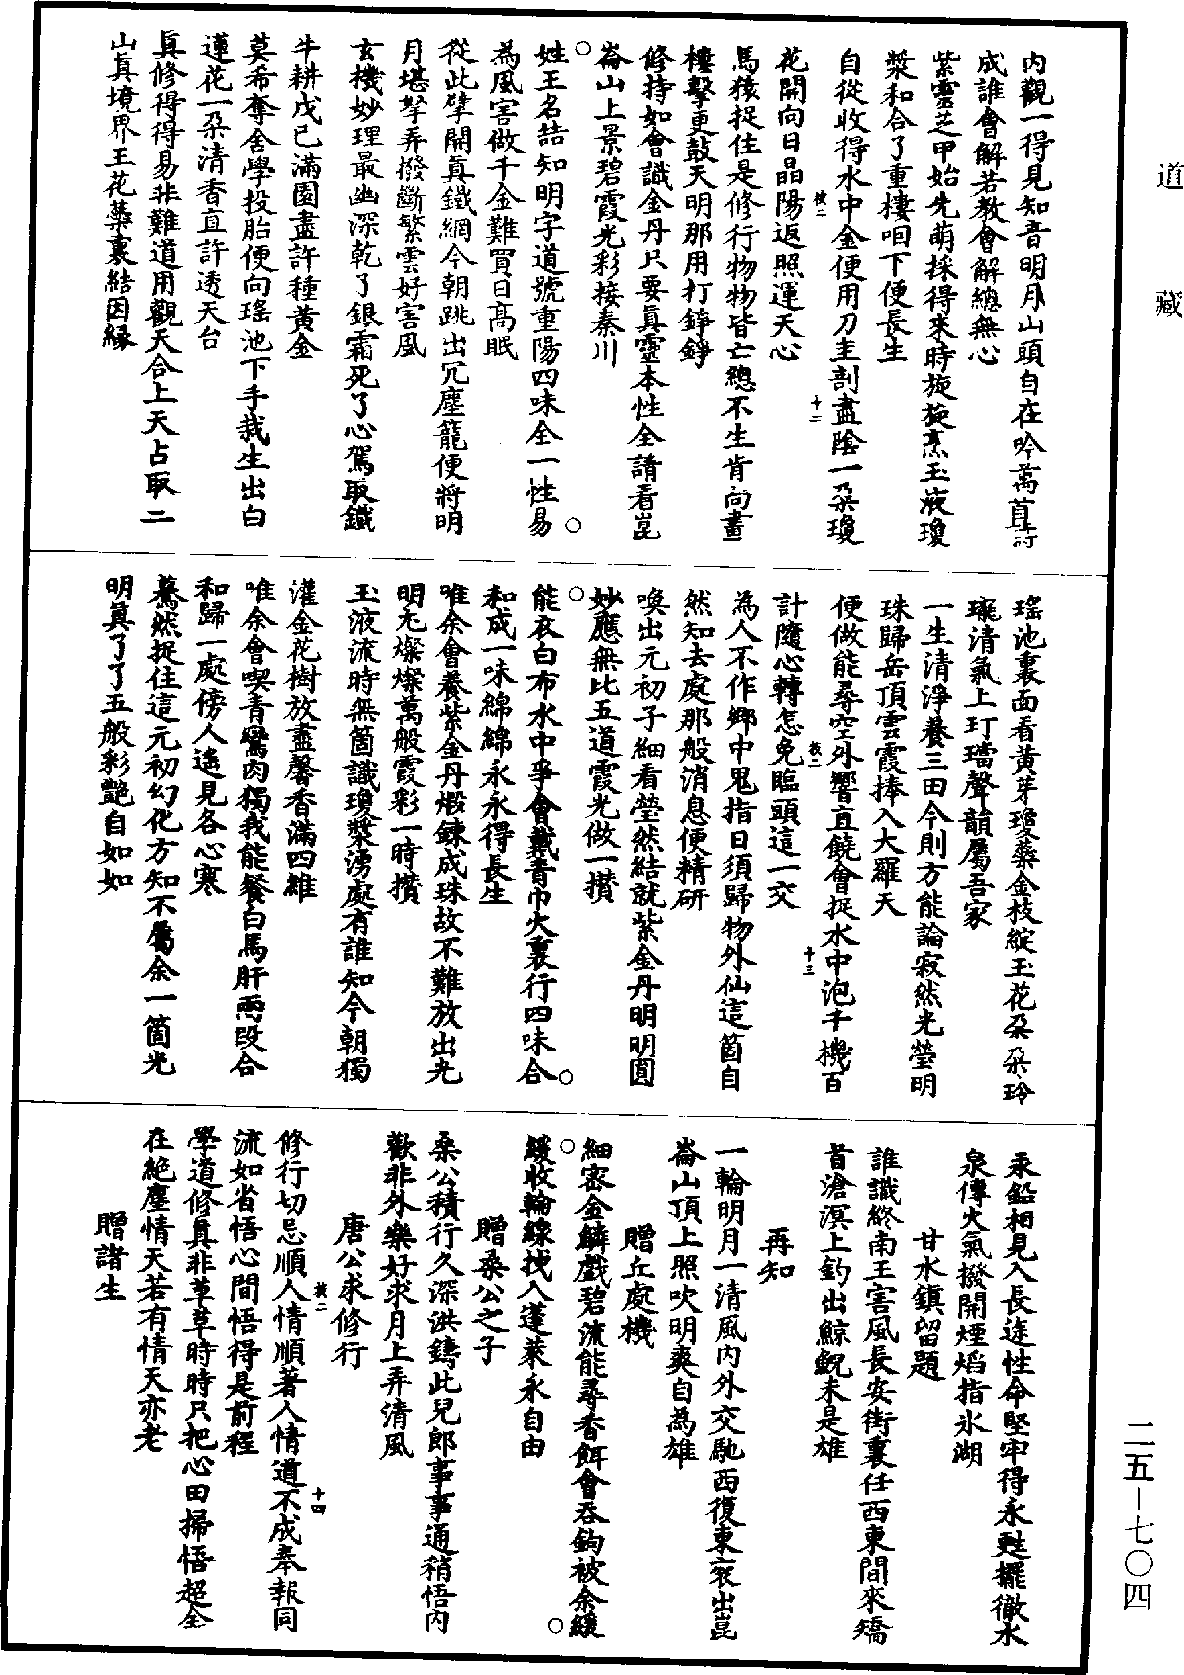 道藏
內觀一得見知音明月山頭自在吟萬首詩
成誰會解若教會解總無心
紫靈芝甲始先萌採得來時旋旋烹玉液瓊
漿和合了重樓咽下便長生
自從收得水中金便用刀圭剖盡陰一朵瓊
花開向日晶陽返照運天心
馬猿捉住是修行物物皆亡總不生肯向畫
樓擊更鼓天明那用打錚錚
修持如會識金丹只要真靈本性全請看崑
崙山上景碧霞光彩接秦川
○姓王名喆知明字道號重陽四味全一性易○
為風害做千金難買日高眠
從此擘開真鐵網今朝跳出冗塵籠便將明
月堪拏弄撥斷繁雲好害風
玄機妙理最幽深乾了銀霜死了心駕取鐵
牛耕戊己滿園盡許種黃金
莫希奪舍學投胎便向瑤池下手栽生出白
蓮花一朵清香直許透天台
真修得得易非難道用觀天合上天占取二
山真境界王花蘂裏結因緣
瑤池裏面看黃芽瓊蘂金枝綻玉花朵朵玲
瓏清氣上玎璫聲韻屬吾家
一生清淨養三田今則方能論寂然光瑩明
珠歸岳頂雲霞捧入大羅天
便做能尋空外響直饒會捉水中泡千機百
計隨心轉怎免臨頭這一交
為人不作鄉中鬼指日須歸物外仙這箇自
然知去處那般消息便精研
喚出元初子細看瑩然結就紫金丹明明圓
妙應無比五道霞光做一攢
○能衣白布水中爭會戴青巾火裏行四味合○
和成一味綿綿永永得長生
唯余會養紫金丹煅鍊成珠故不難放出光
明尤燦燦萬般霞彩一時攢
玉液流時無箇識瓊漿湧處有誰知今朝獨
灌金花樹放盡馨香滿四維
唯余會喫青鸞肉獨我能餐白馬肝兩段合
和歸一處傍人遙見各心寒
驀然捉住這元初幻化方知不屬余一箇光
明真了了五般彩艷自如如
汞鉛相見入長途性命堅牢得永甦擺徹水
泉傳火氣撥開煙焰指氷湖
甘水鎮留題
誰識終南王害風長安街裏任西東間來矯
首滄溟上釣出鯨鯢未是雄
再知
一輪明月一清風內外交馳西復東袞出崑
崙山頂上照吹明爽自為雄
贈丘處機
○細密金鱗戲碧流能尋香餌會吞鉤被余緩○
緩收輪線拽入蓬萊永自由
贈桑公之子
桑公積行久深洪鑄此兒郎事事通稍悟內
歡非外樂好求月上弄清風
唐公求修行
修行切忌順人情順著人情道不成奉報同
流如省悟心間悟得是前程
學道修真非草草時時只把心田掃悟超全
在絕塵情天若有情天亦老
贈諸生
枝二
十二
枝二
十三
枝二
十四
二五—七〇四